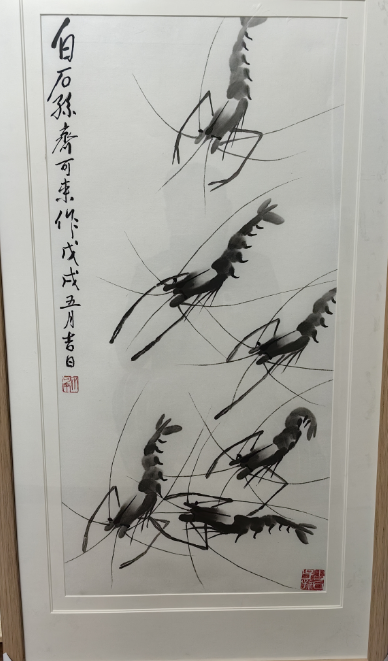 白石孫齊可来作戊戌五月吉日